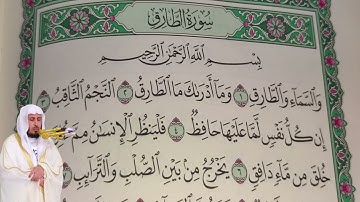 سُورَةُ الطَّارِقِ
بِسْمِ اللَّهِ الرَّحْمَٰنِ الرَّحِيمِ
وَالسَّمَاءِ وَالطَّارِقِ ١ وَمَا أَدْرَاكَ مَا الطَّارِقُ ٢ النَّجْمُ الثَّاقِبُ ٣
إِن كُلُّ نَفْسٍ لَّمَّا عَلَيْهَا حَافِظٌ ٤ فَلْيَنظُرِ الْإِنسَانُ مِمَّ خُلِقَ
خُلِقَ مِن مَّاءٍ دَافِقٍ ٦ يَخْرُجُ مِن بَيْنِ الصُّلْبِ وَالتَّرَائِبِ